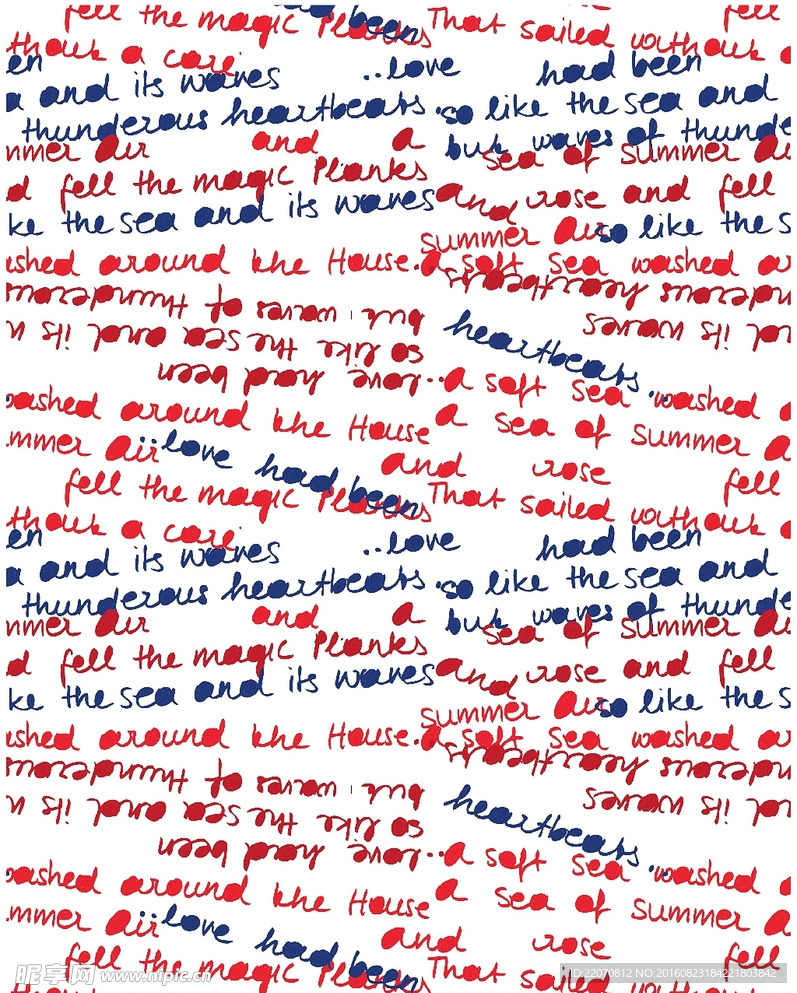 fell the magic Planks That sailed without fell
had been
thout a care
en
a and its waves ..love had been
thunderous heartbeats. so like the sea and
mmer Air and a but waves of thunde
sea of summer Ai
d fell the magic Planks and rose and fell
ke the sea and its waves
summer Air so like the s
ashed around the House. A soft sea washed ar
heartbeats
but waves of thunderous
heartbeats..
so like the sea and its waves
..love had been
a soft sea washed a
washed around the House a sea of summer
mmer Air ..love had been and rose
fell the magic Planks That sailed without fell
thout a care
en
a and its waves ..love had been
thunderous heartbeats. so like the sea and
mmer Air and a but waves of thunde
sea of summer Ai
d fell the magic Planks and rose and fell
ke the sea and its waves
summer Air so like the s
ashed around the House. A soft sea washed ar
heartbeats
but waves of thunderous
heartbeats..
so like the sea and its waves
..love had been
a soft sea washed a
washed around the House a sea of summer
mmer Air ..love had been and rose
fell the magic Planks That sailed fell
昵享网 www.nipic.cn
ID:22070812 NO:20160823184221803842